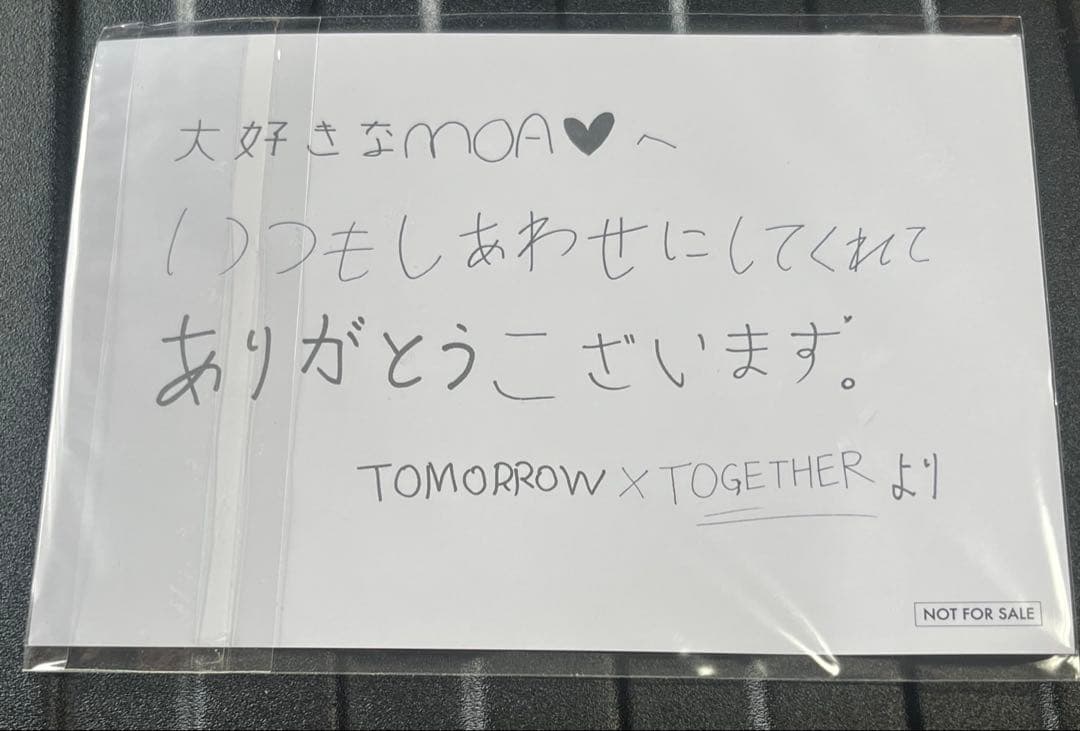 大好きなMOA♥へ
いつもしあわせにしてくれて
ありがとうございます。
TOMORROW X TOGETHERより
NOT FOR SALE